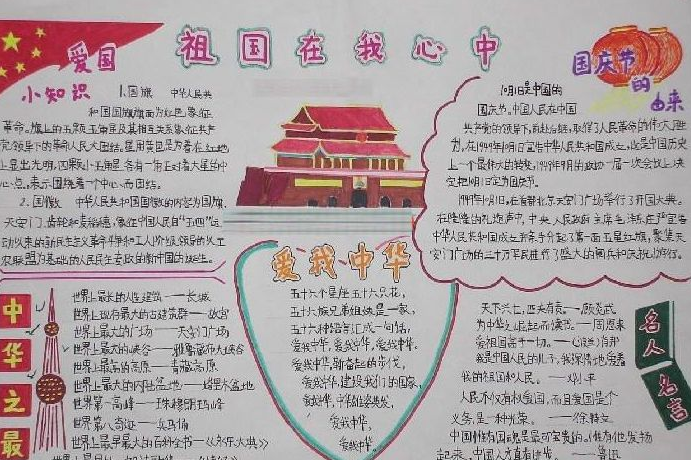 祖国在我心中
爱国
小知识
1.国旗 中华人民共
和国国旗旗面为红色,象征
革命。旗上的五颗五角星及其相互关系象征共产
党领导下的革命人民大团结。星用黄色是为着在红地
上显出光明,四颗小五角星各有一角正对着大星的中
心点,表示围绕着一个中心而团结。
2.国徽 中华人民共和国国徽的内容为国旗、
天安门、齿轮和麦稻穗,象征中国人民自“五四”运
动以来的新民主主义革命斗争和工人阶级领导的以工
农联盟为基础的人民民主专政的新中国的诞生。
国庆节
的
由来
10月1日是中国的
国庆节。中国人民在中国
共产党的领导下,前赴后继,取得了人民革命的伟大胜
利。在1949年10月1日宣告中华人民共和国成立,这是中国历史
上一个最伟大的转变。1949年9月的政协一届一次会议上决
定把10月1日定为国庆节。
1949年10月1日,在首都北京天安门广场举行了开国大典。
在隆隆的礼炮声中,中央人民政府主席毛泽东庄严宣告
中华人民共和国成立并亲手升起了第一面五星红旗。聚集天
安门广场的三十万军民进行了盛大的阅兵和庆祝游行。
中华之最
世界上最长的人造建筑——长城
世界上现存最大的古建筑群——故宫
世界上最大的广场——天安门广场
世界上最大的峡谷——雅鲁藏布大峡谷
世界上最高的高原——青藏高原
世界上最大的内陆盆地——塔里木盆地
世界第一高峰——珠穆朗玛峰
世界八奇迹——兵马俑
世界上最早最大的百科全书——《永乐大典》
爱我中华
五十六个星座五十六只花,
五十六族兄弟姐妹是一家,
五十六种语言汇成一句话,
爱我中华,爱我中华,爱我中华。
爱我中华,健奋起的步伐,
爱我中华,建设我们的国家,
爱我中华,
爱我中华,
爱我中华。
名人
名言
天下兴亡,匹夫有责。——顾炎武
为中华之崛起而读书。——周恩来
爱祖国高于一切。——
我是中国人民的儿子,我深情地爱着
我的祖国和人民。——邓小平
人民不仅有权爱国,而且爱国是个
义务,是一种光荣。——徐特立
起来,中国人